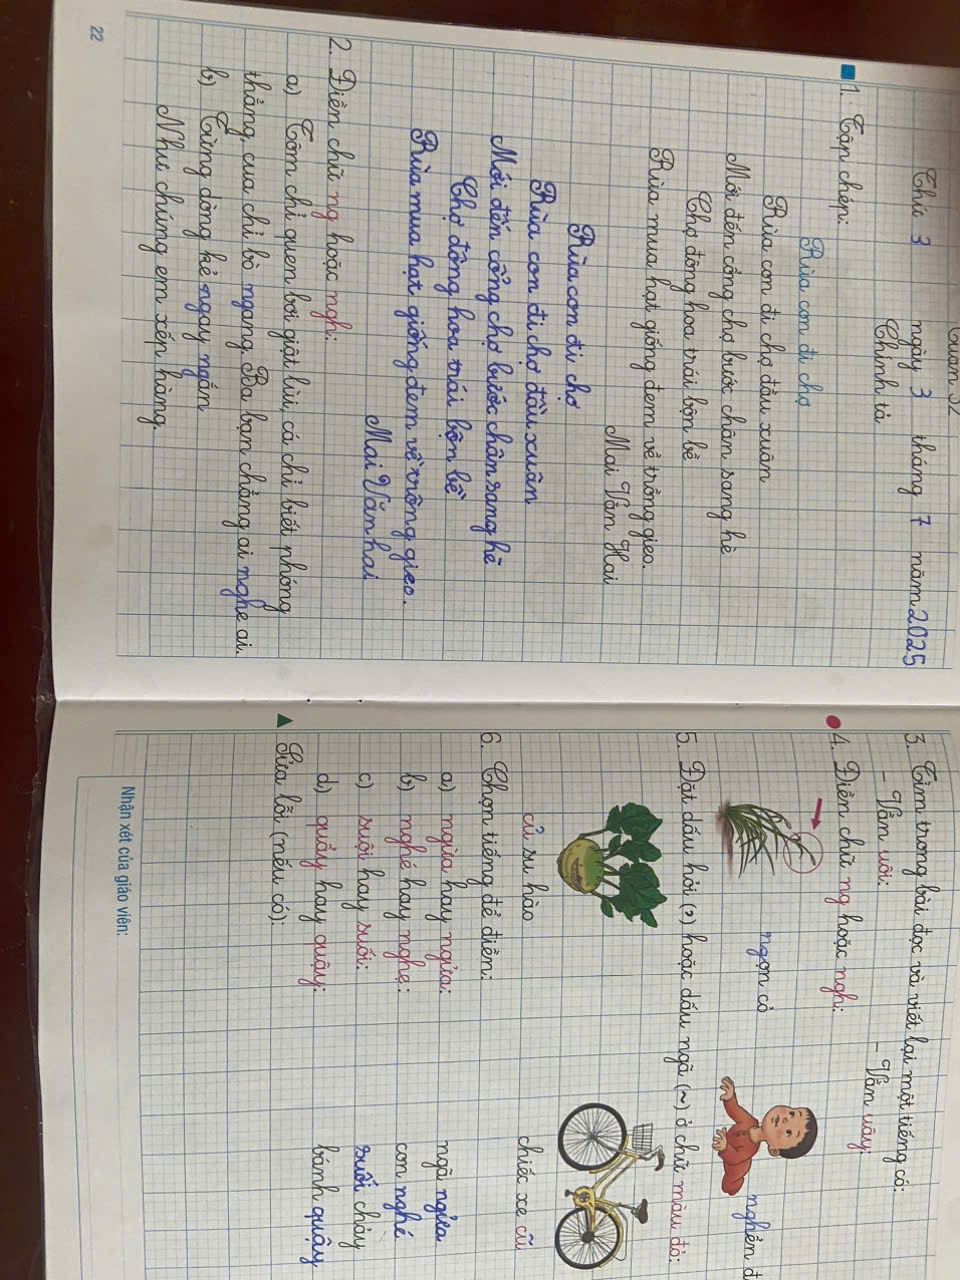 Tuần 32
Thứ 3 ngày 3 tháng 7 năm 2025
Chính tả
1. Tập chép:
Rùa con đi chợ
Rùa con đi chợ đầu xuân
Mới đến cổng chợ bước chân sang hè
Chợ đông hoa trái bộn bề
Rùa mua hạt giống đem về trồng gieo.
Mai Văn Hai
Rùa con đi chợ
Rùa con đi chợ đầu xuân
Mới đến cổng chợ bước chân sang hè
Chợ đông hoa trái bộn bề
Rùa mua hạt giống đem về trồng gieo.
Mai Văn hai
2. Điền chữ ng hoặc ngh:
a) Tôm chỉ quen bơi giật lùi, cá chỉ biết phóng
thẳng, cua chỉ bò ngang. Ba bạn chẳng ai nghe ai.
b) Từng dòng kẻ ngay ngắn
Như chúng em xếp hàng.
22
3. Tìm trong bài đọc và viết lại một tiếng có:
- Vần uôi: - Vần uây:
4. Điền chữ ng hoặc ngh:
ngọn cỏ nghển
5. Đặt dấu hỏi (?) hoặc dấu ngã (~) ở chữ màu đỏ:
củ su hào chiếc xe cũ
6. Chọn tiếng để điền:
a) ngừa hay ngửa: ngã ngửa
b) nghé hay nghẹ: con nghé
c) suội hay suối: suối chảy
d) quẩy hay quậy: bánh quậy
Sửa lỗi (nếu có):
Nhận xét của giáo viên: